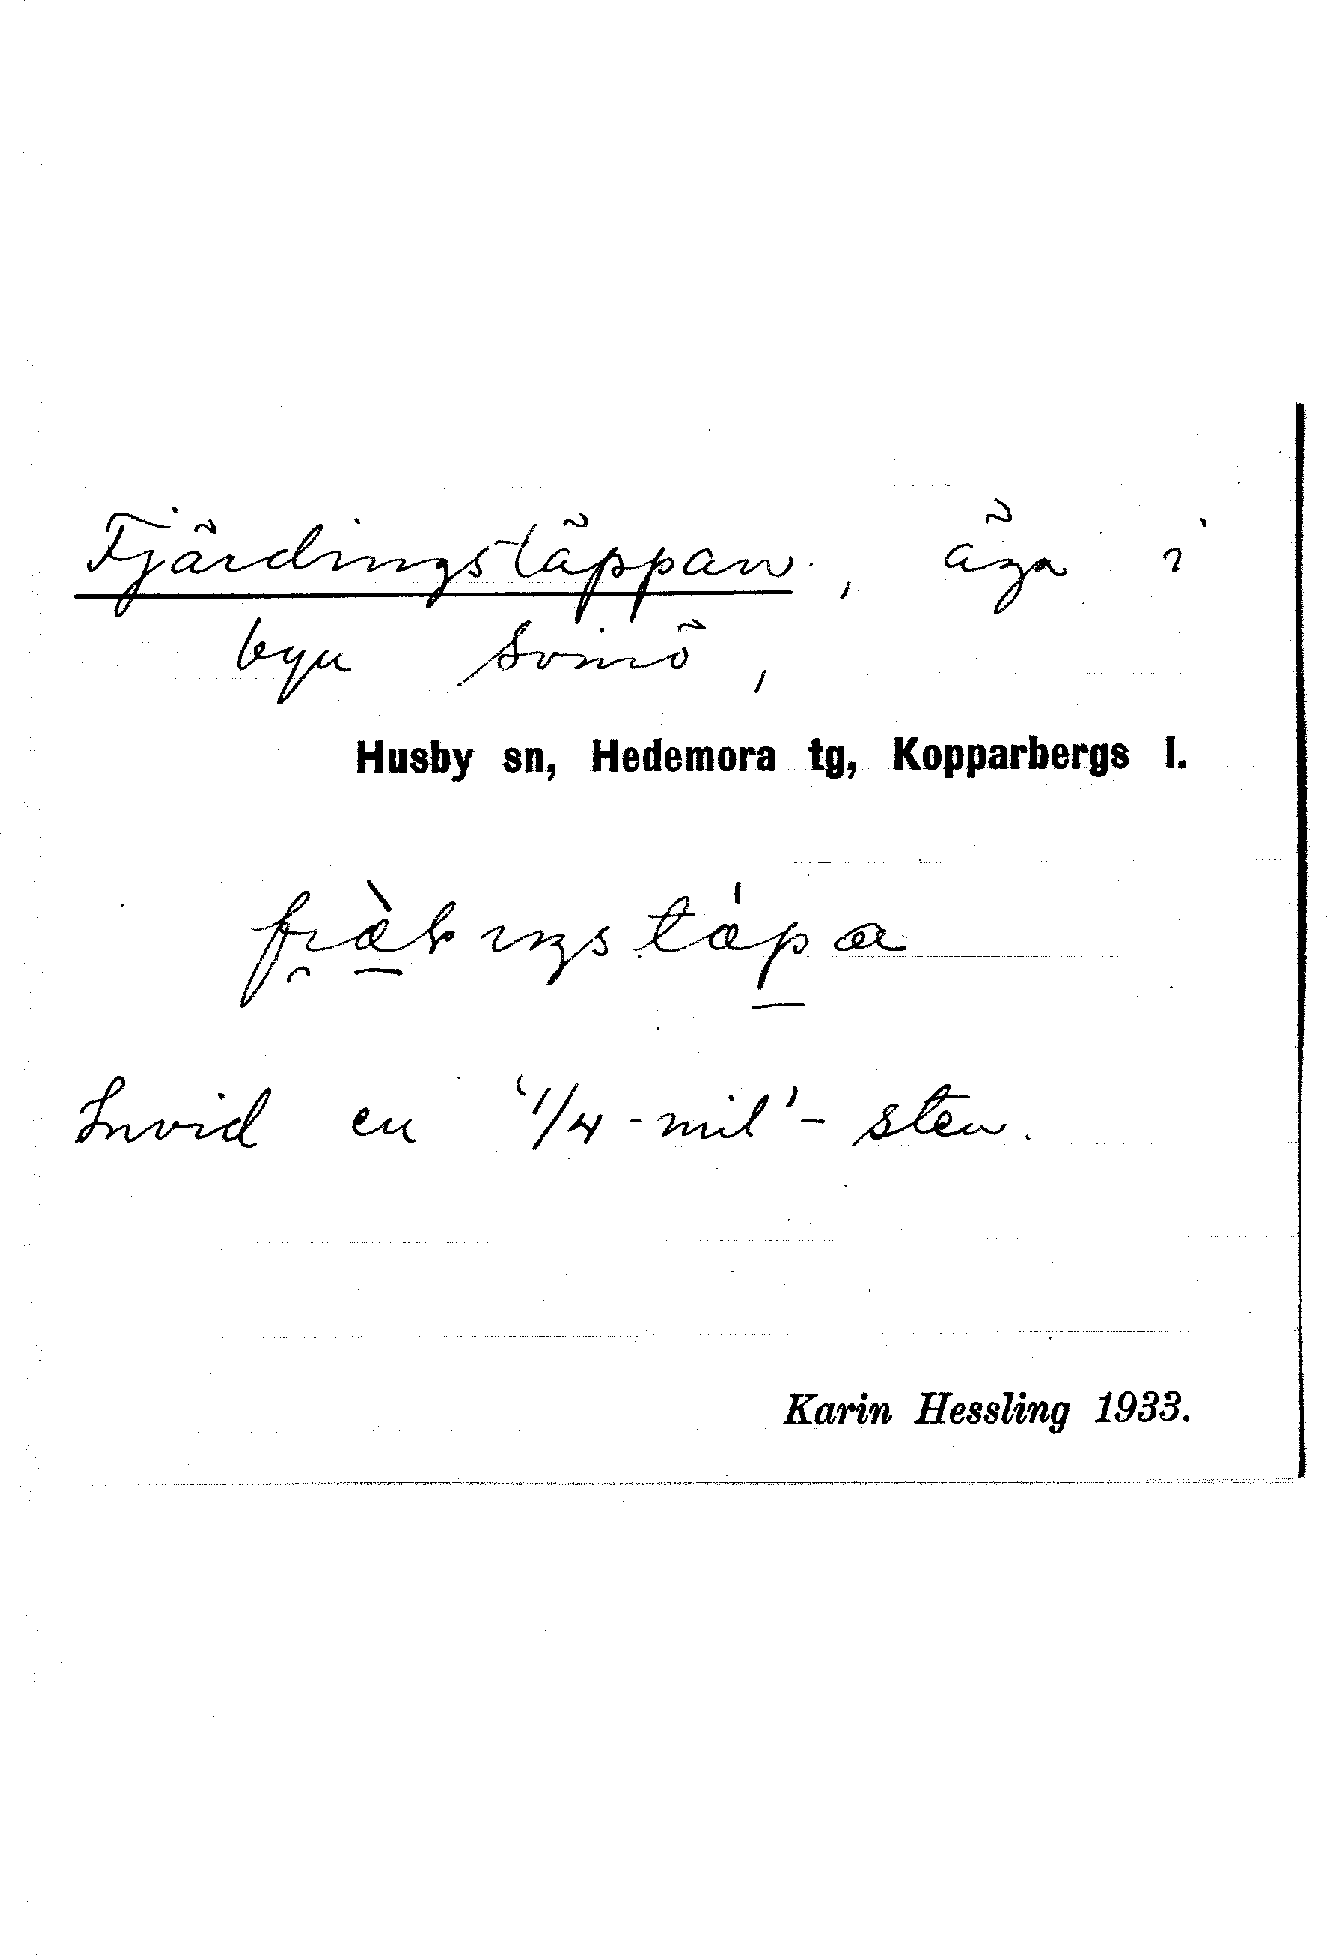 Fjärdingstäppan, äga i
byn Svinö,
Husby sn, Hedemora tg, Kopparbergs l.
Invid en '1/4-mil'-sten.
Karin Hessling 1933.